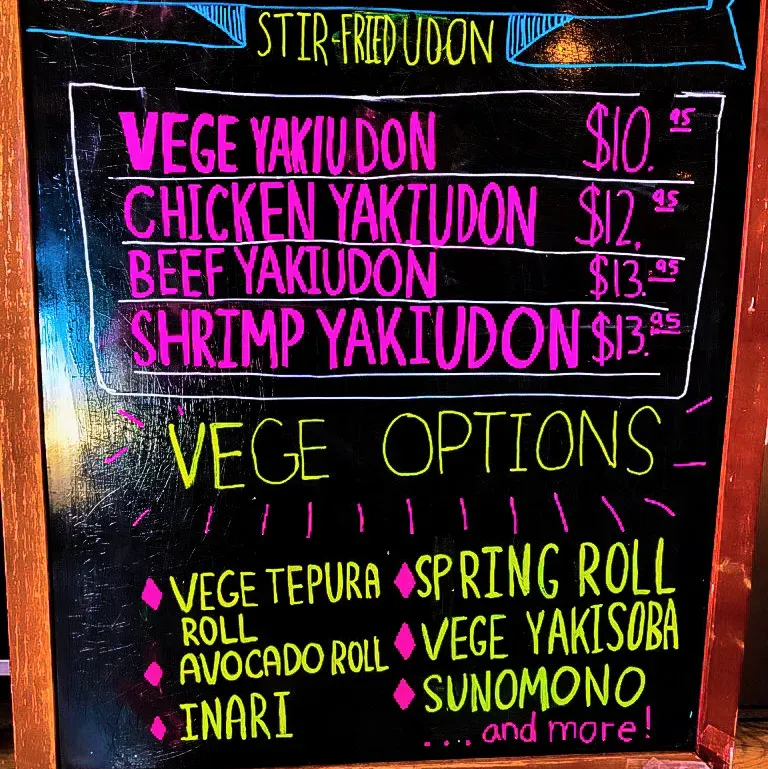 STIR-FRIED UDON
VEGE YAKIUDON $10.95
CHICKEN YAKIUDON $12.95
BEEF YAKIUDON $13.95
SHRIMP YAKIUDON $13.95
VEGE OPTIONS
VEGE TEPURA
ROLL
AVOCADO ROLL
INARI
SPRING ROLL
VEGE YAKISOBA
SUNOMONO
....and more!